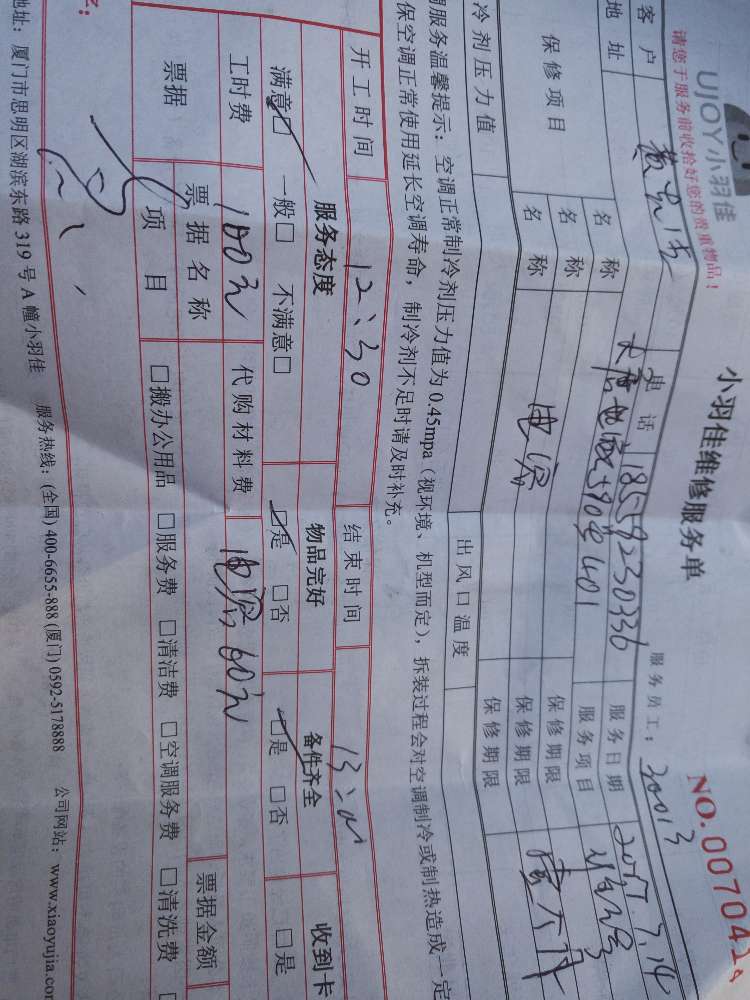 UJOY小羽佳
小羽佳维修服务单
NO.007042
请您于服务前收拾好您的贵重物品!
服务员工: 30013
客户 电话 18559230336 服务日期 2017.7.14
地址 大唐世家590号401 服务项目
保修项目 名称 保修期限
名称 保修期限
名称 电容 保修期限
冷剂压力值 出风口温度
期服务温馨提示:空调正常制冷剂压力值为0.45mpa(视环境、机型而定),拆装过程会对空调制冷或制热造成一定
保空调正常使用延长空调寿命,制冷剂不足时请及时补充。
开工时间 12:30 结束时间
服务态度 物品完好 备件齐全 收到卡
满意□ 一般□ 不满意□ □是 □否 □是 □否 □是
工时费 100元 代购材料费 电容60元
票据 票据名称 票据金额
项目 □搬办公用品 □服务费 □清洁费 □空调服务费 □清洗费
地址:厦门市思明区湖滨东路319号A幢小羽佳 服务热线:(全国)400-6655-888(厦门)0592-5178888 公司网站:www.xiaoyujia.com